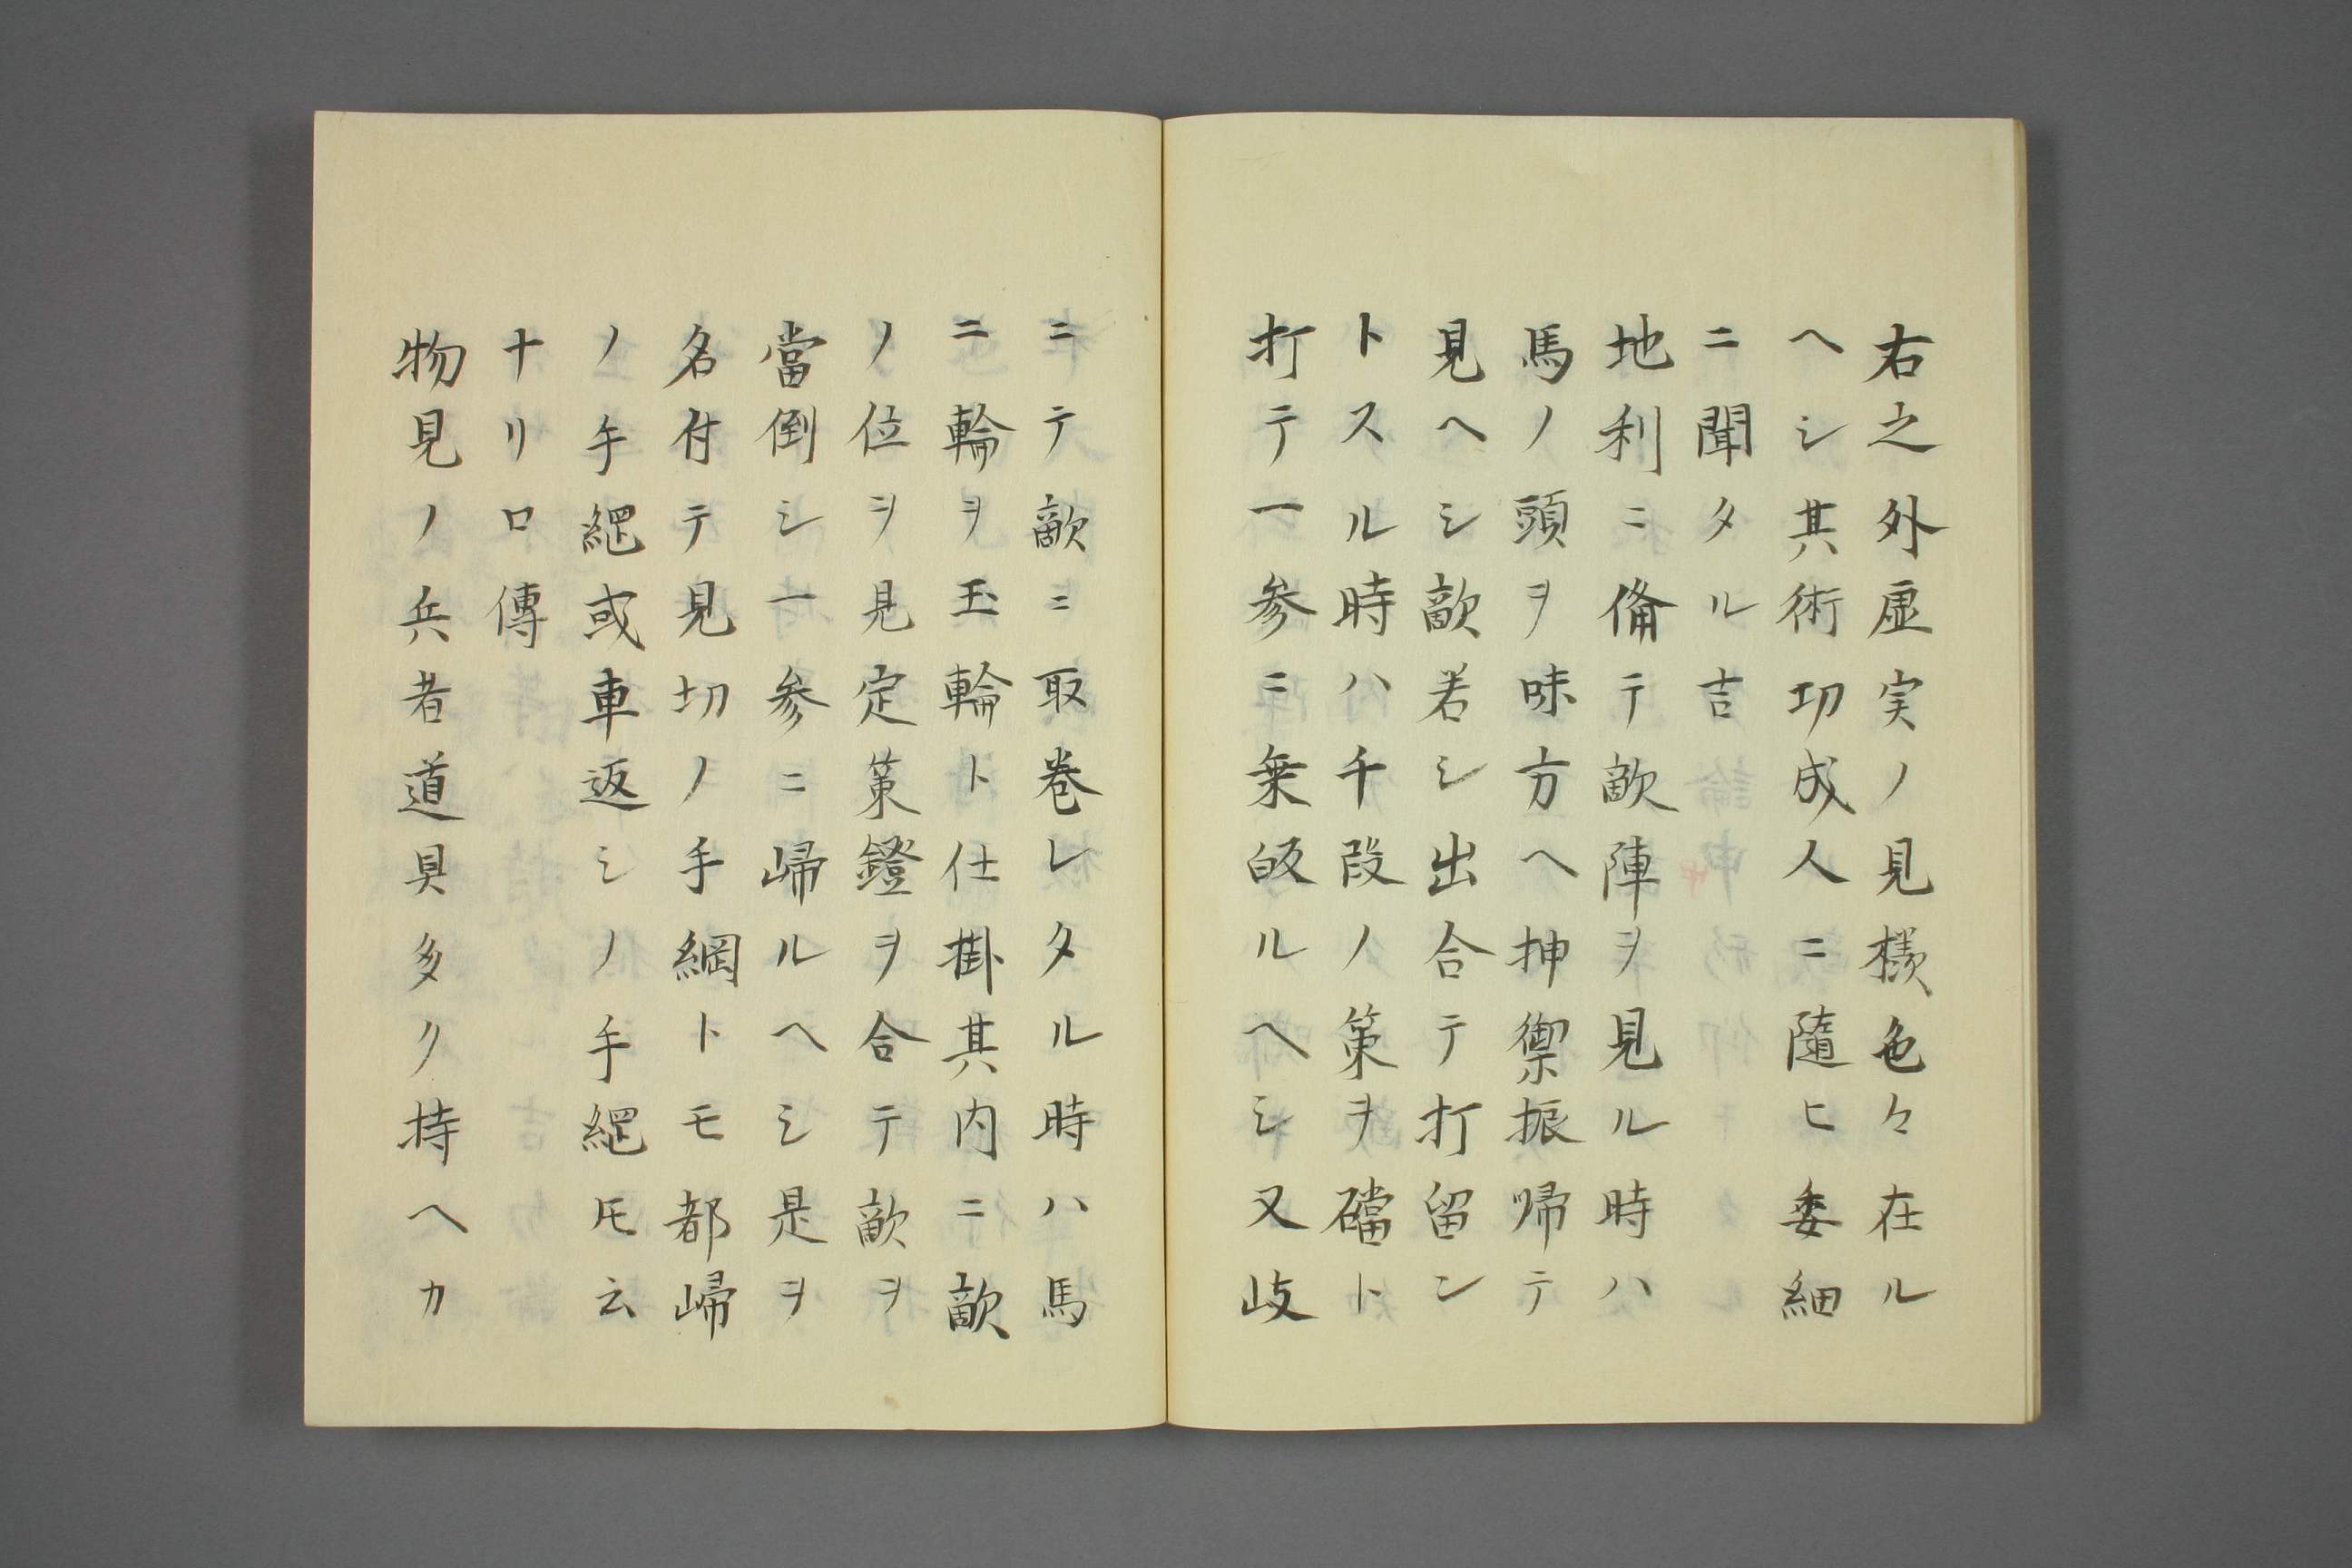 右之外虚実ノ見様色々在ル
ヘシ其術切成人ニ隨ヒ委細
ニ聞タル吉
地利ニ備テ敵陣ヲ見ル時ハ
馬ノ頭ヲ味方ヘ抻禦振帰テ
見ヘシ敵若シ出合テ打留ン
トスル時ハ千段ノ策ヲ礑ト
打テ一参ニ乗皈ルヘシ又岐
ニテ敵ニ取巻レタル時ハ馬
ニ輪ヲ玉輪ト仕掛其内ニ敵
ノ位ヲ見定策鐙ヲ合テ敵ヲ
當倒シ一参ニ帰ルヘシ是ヲ
名付テ見切ノ手綱トモ都帰
ノ手綱或車返シノ手綱圧云
ナリ口傳
物見ノ兵者道具多ク持ヘカ